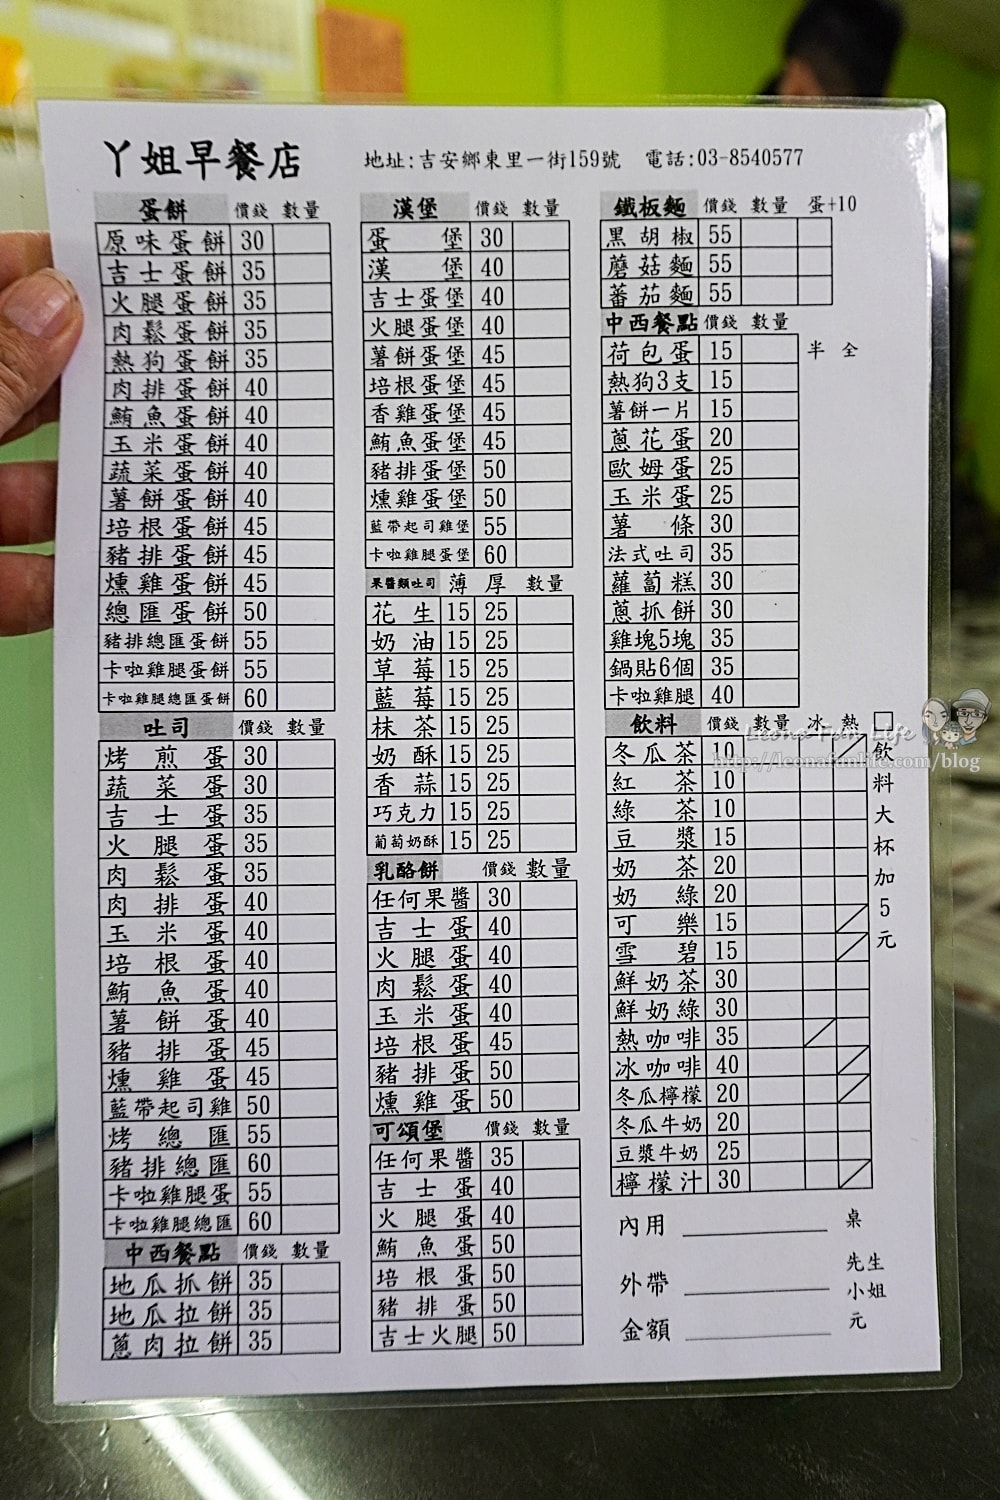 丫姐早餐店
地址:吉安鄉東里一街159號 電話:03-8540577
蛋餅 價錢 數量
原味蛋餅 30
吉士蛋餅 35
火腿蛋餅 35
肉鬆蛋餅 35
熱狗蛋餅 35
肉排蛋餅 40
鮪魚蛋餅 40
玉米蛋餅 40
蔬菜蛋餅 40
薯餅蛋餅 40
培根蛋餅 45
豬排蛋餅 45
燻雞蛋餅 45
總匯蛋餅 50
豬排總匯蛋餅 55
卡啦雞腿蛋餅 55
卡啦雞腿總匯蛋餅 60
吐司 價錢 數量
烤煎蛋 30
蔬菜蛋 30
吉士蛋 35
火腿蛋 35
肉鬆蛋 35
肉排蛋 40
玉米蛋 40
培根蛋 40
鮪魚蛋 40
薯餅蛋 40
豬排蛋 45
燻雞蛋 45
藍帶起司雞 50
烤總匯 55
豬排總匯 60
卡啦雞腿蛋 55
卡啦雞腿總匯 60
中西餐點 價錢 數量
地瓜抓餅 35
地瓜拉餅 35
蔥肉拉餅 35
漢堡 價錢 數量
蛋堡 30
漢堡 40
吉士蛋堡 40
火腿蛋堡 40
薯餅蛋堡 45
培根蛋堡 45
香雞蛋堡 45
鮪魚蛋堡 45
豬排蛋堡 50
燻雞蛋堡 50
藍帶起司雞堡 55
卡啦雞腿蛋堡 60
果醬類吐司 薄 厚 數量
花生 15 25
奶油 15 25
草莓 15 25
藍莓 15 25
抹茶 15 25
奶酥 15 25
香蒜 15 25
巧克力 15 25
葡萄奶酥 15 25
乳酪餅 價錢 數量
任何果醬 30
吉士蛋 40
火腿蛋 40
肉鬆蛋 40
玉米蛋 40
培根蛋 45
豬排蛋 50
燻雞蛋 50
可頌堡 價錢 數量
任何果醬 35
吉士蛋 40
火腿蛋 40
鮪魚蛋 50
培根蛋 50
豬排蛋 50
吉士火腿 50
鐵板麵 價錢 數量 蛋+10
黑胡椒 55
蘑菇麵 55
蕃茄麵 55
中西餐點 價錢 數量
荷包蛋 15 半 全
熱狗3支 15
薯餅一片 15
蔥花蛋 20
歐姆蛋 25
玉米蛋 25
薯條 30
法式吐司 35
蘿蔔糕 30
蔥抓餅 30
雞塊5塊 35
鍋貼6個 35
卡啦雞腿 40
飲料 價錢 數量 冰 熱 □
冬瓜茶 10
紅茶 10
綠茶 10
豆漿 15
奶茶 20
奶綠 20
可樂 15
雪碧 15
鮮奶茶 30
鮮奶綠 30
熱咖啡 35
冰咖啡 40
冬瓜檸檬 20
冬瓜牛奶 20
豆漿牛奶 25
檸檬汁 30
飲料大杯加5元
內用 桌
外帶 先生
小姐
金額 元
Leona Fun Life
http://leonafunlife.com/blog